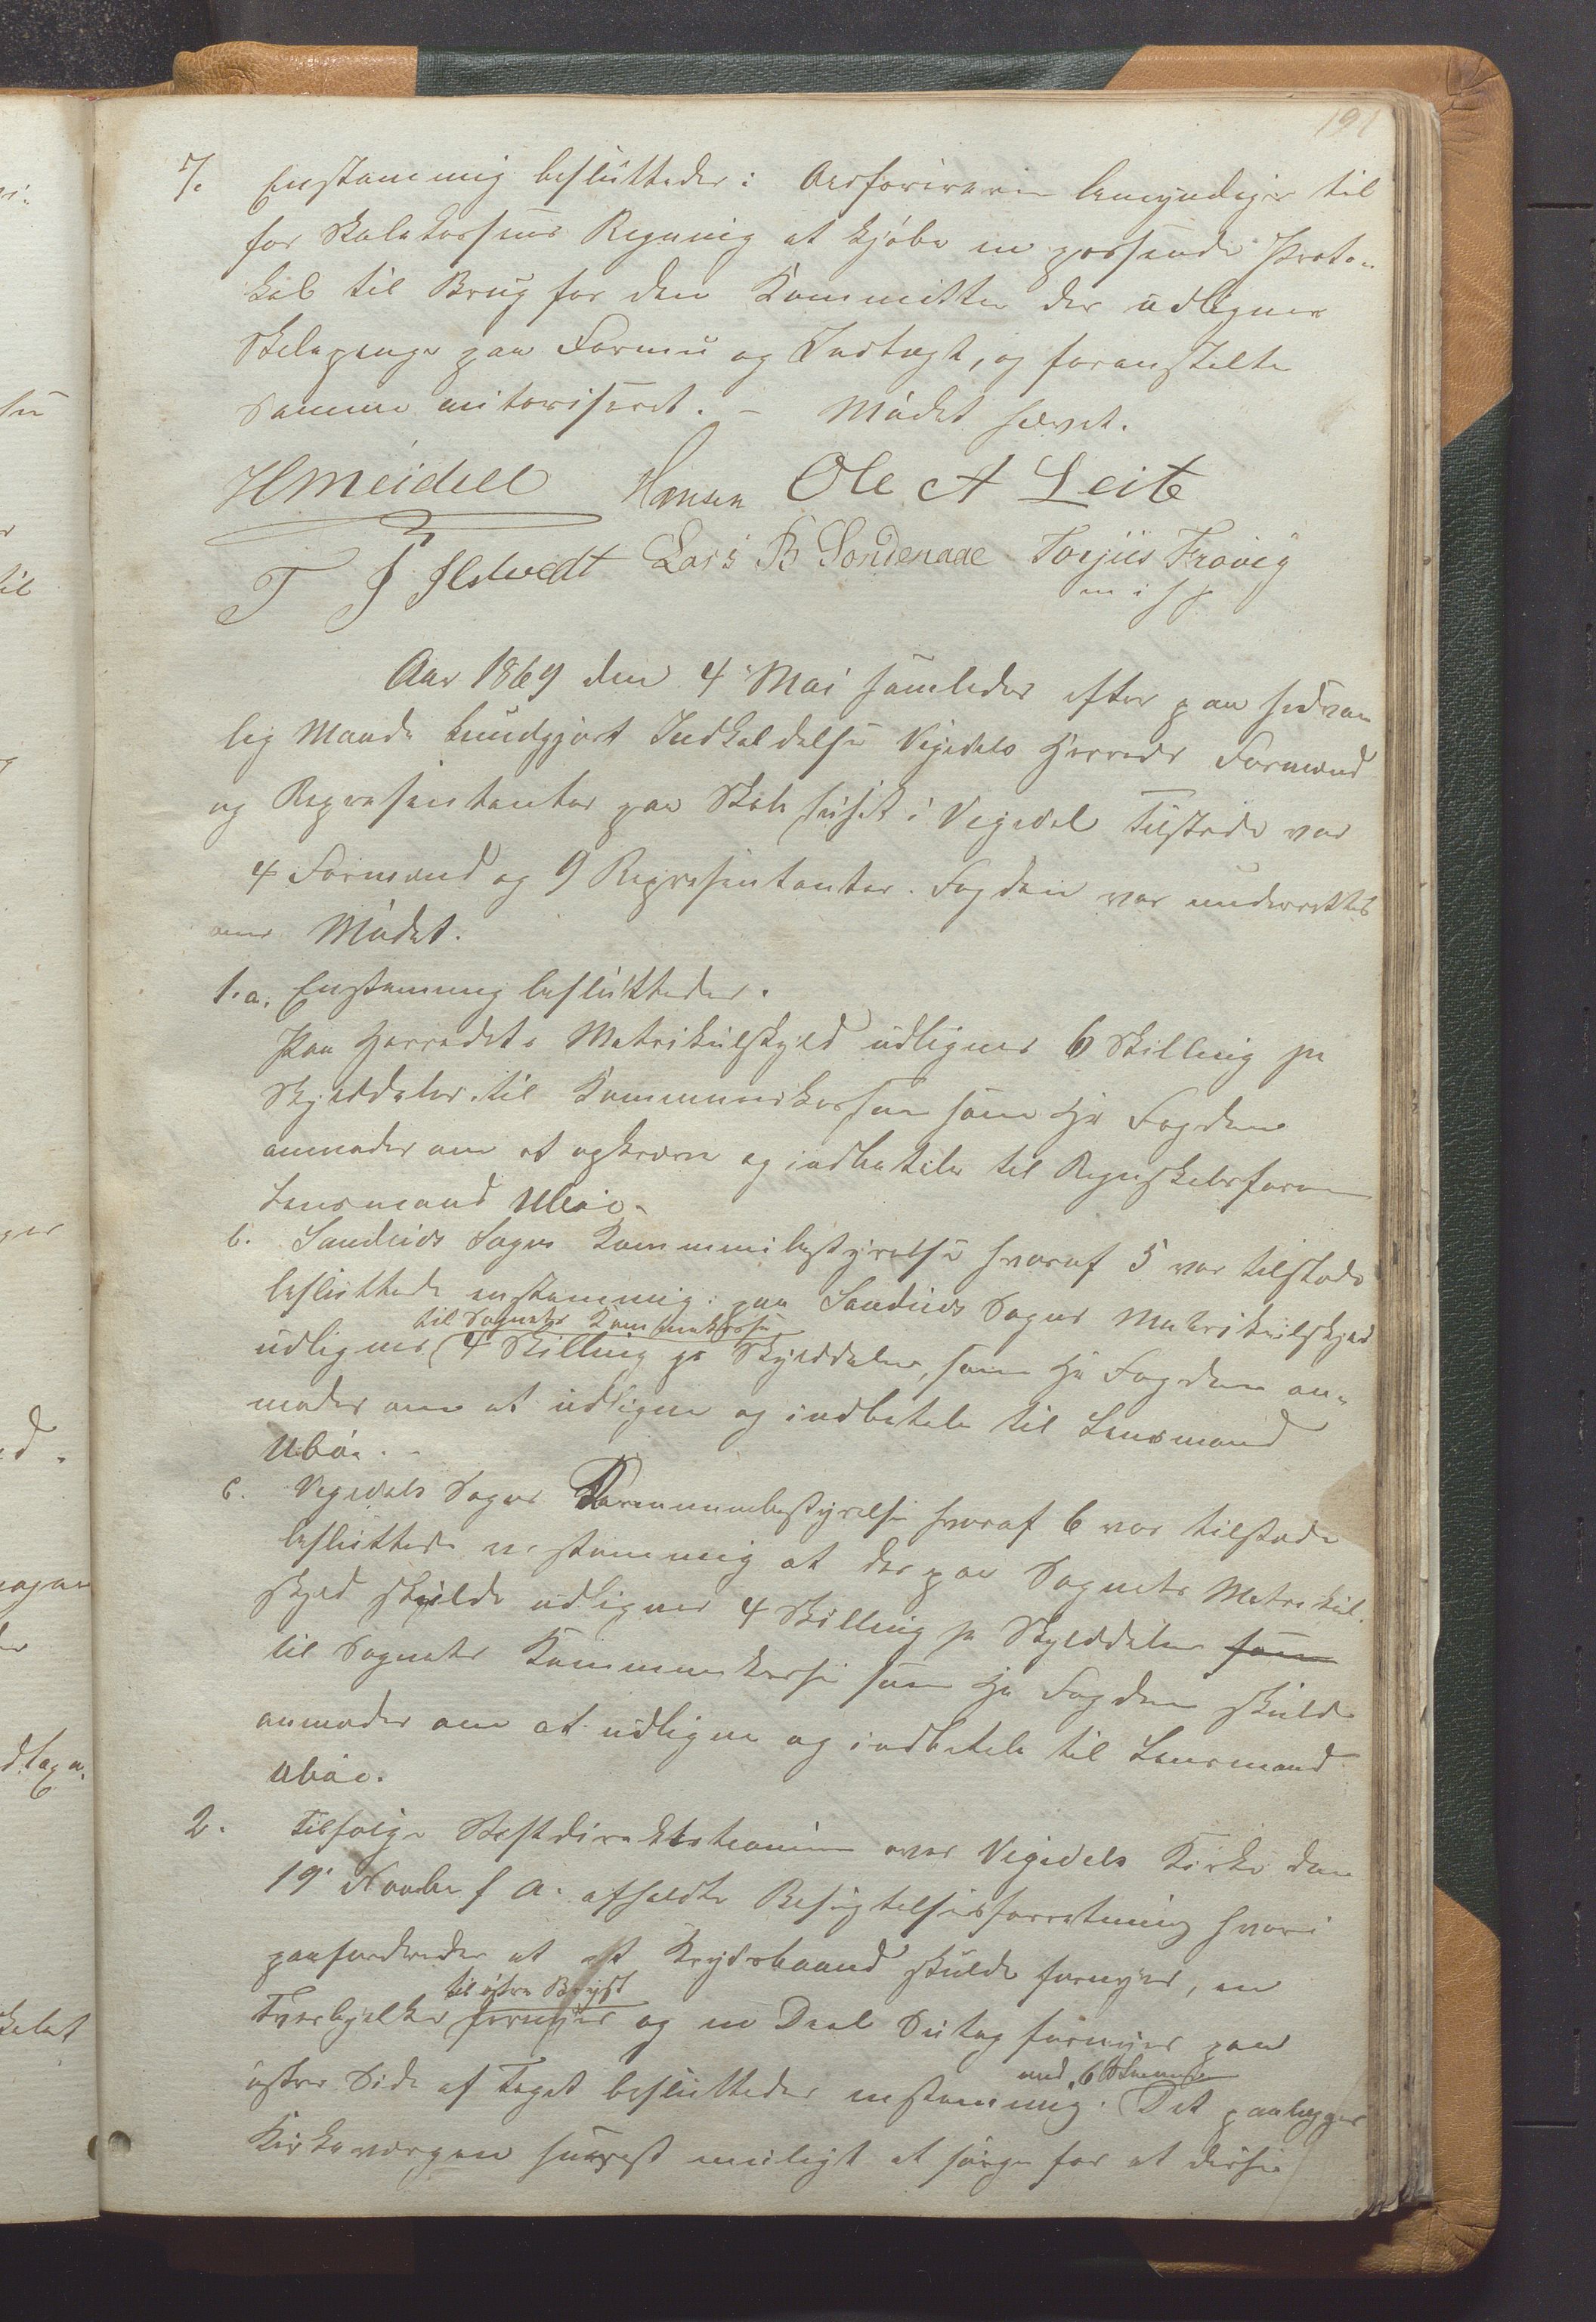 191
7. Enstemmig besluttedes: Ordføreren bemyndiges til
for Skolekassens Regning at kjøbe en passende Proto-
kol til Brug for den Kommitte der udligner
Skolepenge paa Formue og Indtægt, og foranstalte
samme autoriseret. – Mødet hævet.
H Meidell Hansen Ole A Leite
T J Ilstvedt Lars B Søndenaae Torjus Frøvig
m i f p
Aar 1869 den 4 Mai samledes efter paa sedvan
lig Maade kundgjort Indkaldelse Vigedals Herreds Formænd
og Repræsentanter paa Skolehuset i Vigedal Tilstede var
4 Formænd og 9 Repræsentanter. Fogden var underrettet
om Mødet.
1. a. Enstemmig besluttedes.
Paa Herredets Matrikulskyld udlignes 6 Skilling pr
Skylddaler til Kommunekassen som Hr Fogden
anmodes om at opkræve og indbetale til Regnskabsføreren
Lensmand Ubøe.
b. Sandeids Sogns Kommunebestyrelse hvoraf 5 var tilstede
besluttede enstemmig: paa Sandeids Sogns Matrikulskyld
til Sognets Kommunekasse
udlignes 4 Skilling pr Skylddaler, som Hr Fogden an-
modes om at udligne og indbetale til Lensmand
Ubøe. –
c. Vigedals Sogns Kommunebestyrelse hvoraf 6 var tilstede
besluttede enstemmig at der paa Sognets Matrikul-
skyld skulde udlignes 4 Skilling pr Skylddaler som
til Sognets Kommunekasse som Hr Fogden skulde
anmodes om at udligne og indbetale til Lensmand
Ubøe.
2. Tilfølge Stiftdirektionens over Vigedals Kirke den
19 Novbr f A. afholdte Besigtelsesforretning hvori
paafordredes at et Krydsbaand skulde fornyes, en
til østre Bryst
Tverbjelke fornyes og en Deel Sutag fornyes paa
med 6 Stemmer
østre Side af Taget besluttedes enstemmig. Det paalægges
Kirkeværgen snarest muligt at sørge for at disse